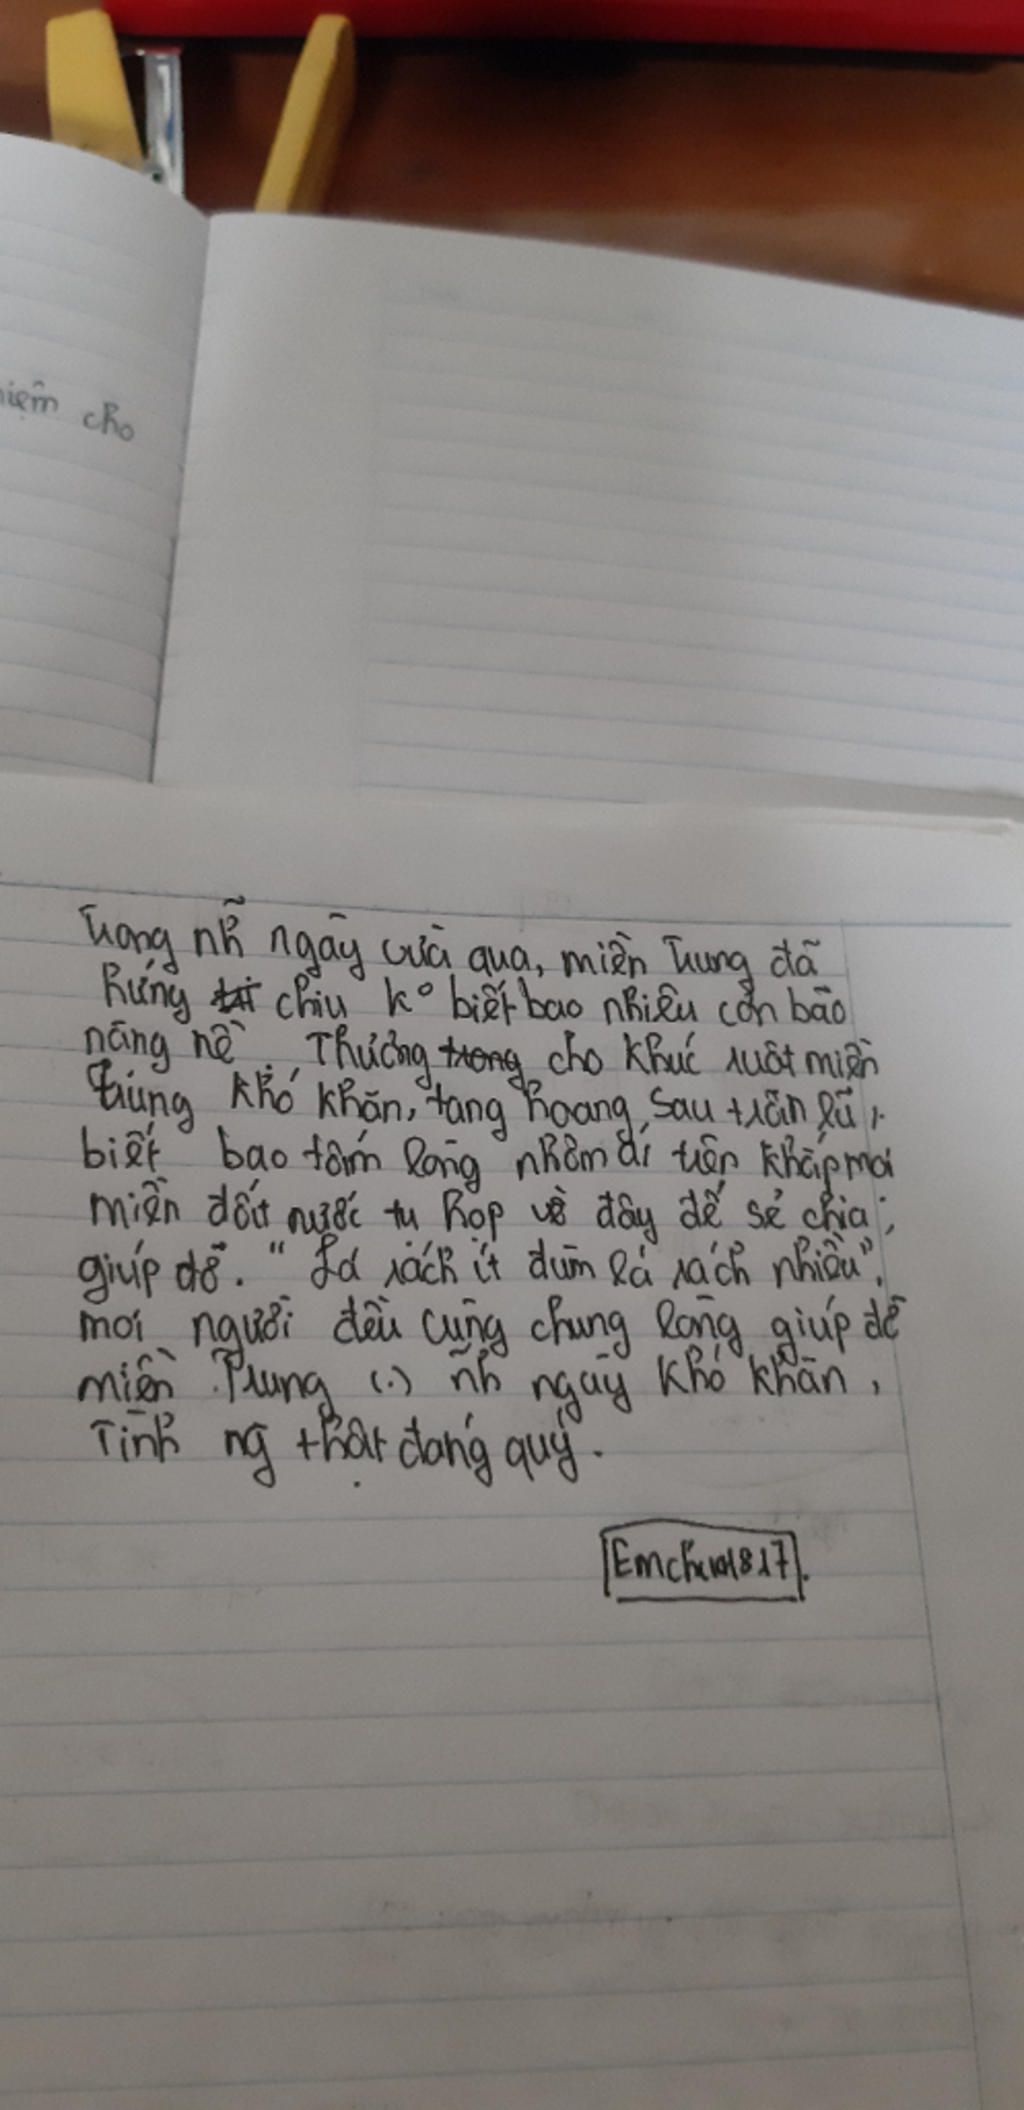 iệm cho
Trong nh~ ngày vừa qua, miền Trung đã
hứng chịu k° biết bao nhiêu cơn bão
nặng nề. Thương trong cho khúc ruột miền
trung khó khăn, tang hoang sau trận lũ,
biết bao tấm lòng nhân ái trên khắp mọi
miền đất nước tụ họp về đây để sẻ chia,
giúp đỡ. "Lá rách ít đùm lá rách nhiều",
mọi người đều cùng chung lòng giúp đỡ
miền Trung (.) nh~ ngày khó khăn,
Tình ng~ thật đáng quý.